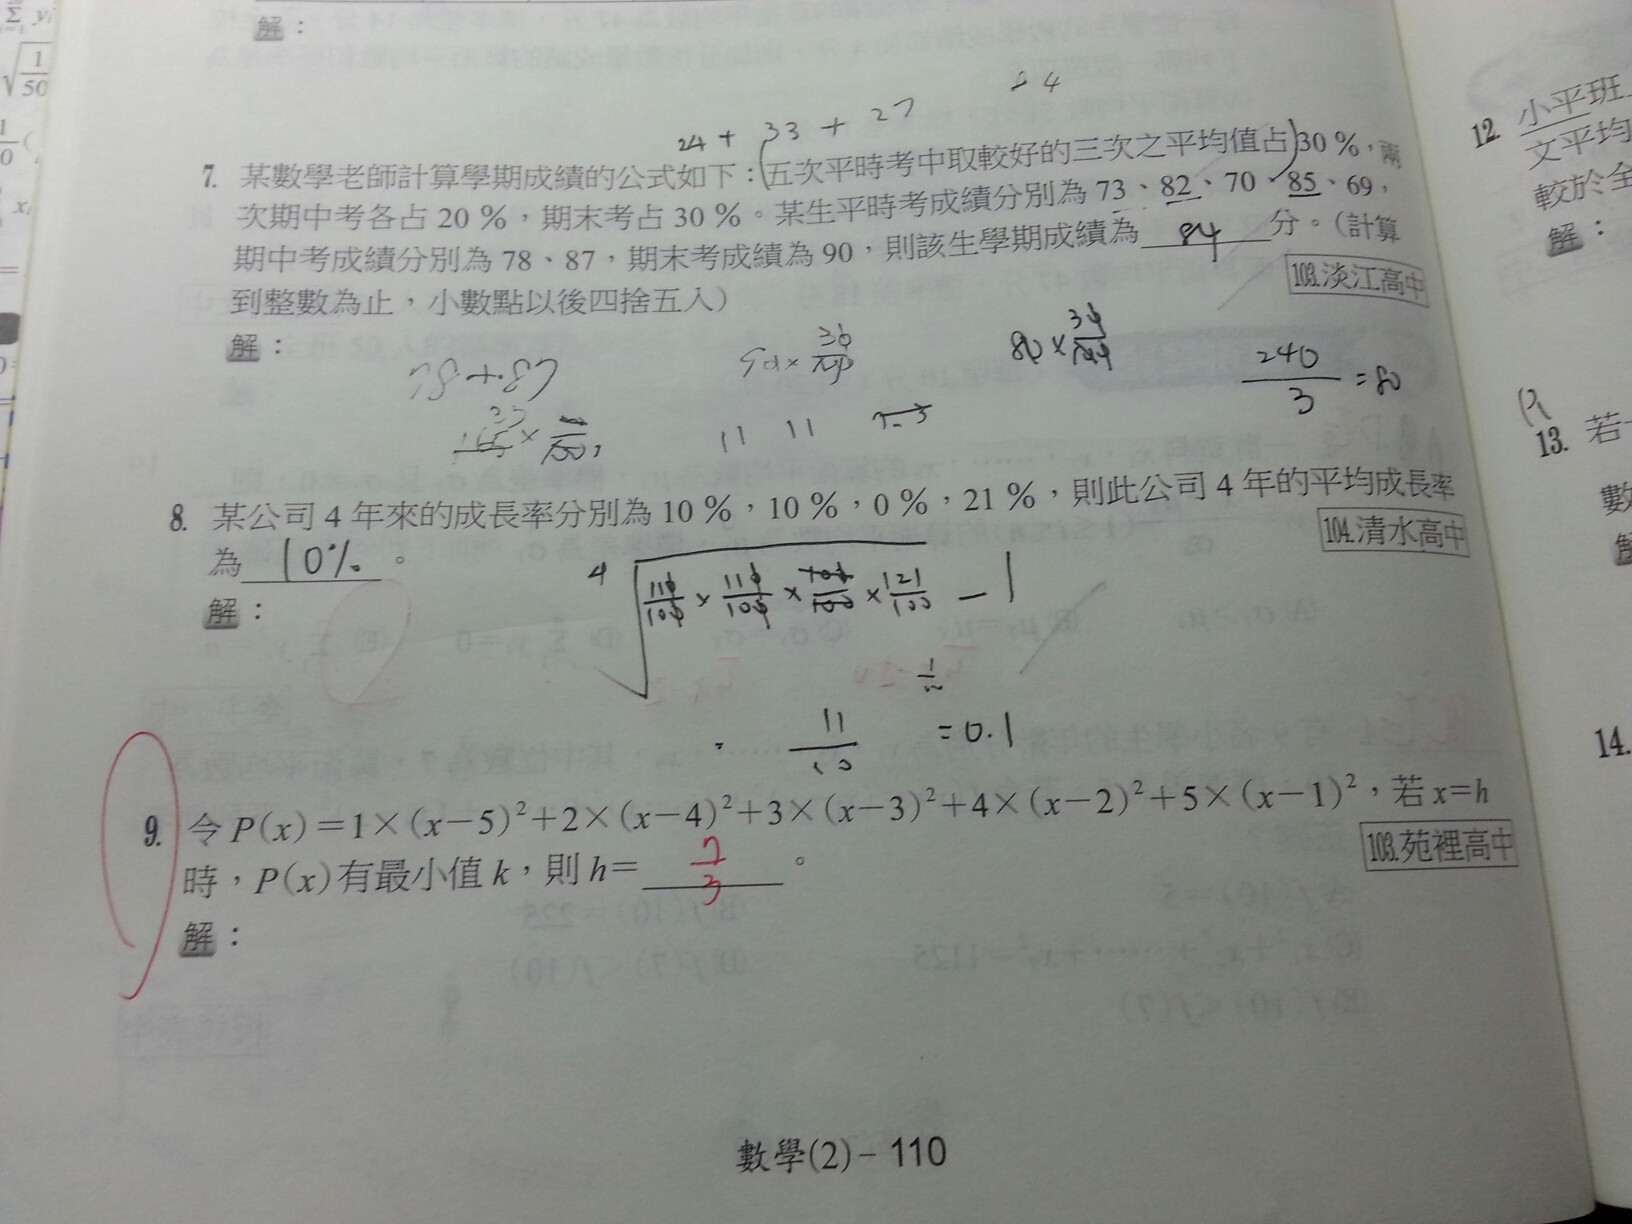 解：
84
24 + 33 + 27
7. 某數學老師計算學期成績的公式如下：(五次平時考中取較好的三次之平均值占)30%，兩
次期中考各占 20%，期末考占 30%。某生平時考成績分別為 73、82、70、85、69，
期中考成績分別為 78、87，期末考成績為 90，則該生學期成績為 84 分。（計算
到整數為止，小數點以後四捨五入） 103.淡江高中
解：
78+87
90×30/100
80×30/100
240/3 = 80
8. 某公司 4 年來的成長率分別為 10%，10%，0%，21%，則此公司 4 年的平均成長率
為 10% 。 104.清水高中
解：
⁴√110/100 × 110/100 × 100/100 × 121/100 − 1
11/10 = 0.1
9. 令 P(x)=1×(x−5)²+2×(x−4)²+3×(x−3)²+4×(x−2)²+5×(x−1)²，若 x=h
時，P(x)有最小值 k，則 h= 7/3 。 103.苑裡高中
解：
數學(2)－110
12. 小平班
文平均
較於全
解：
13. 若
數
14.